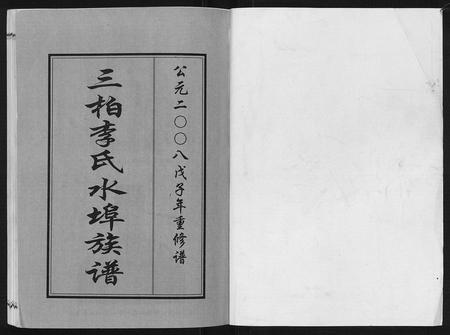 公元二〇〇八戊子年重修谱
三柏李氏水埠族谱